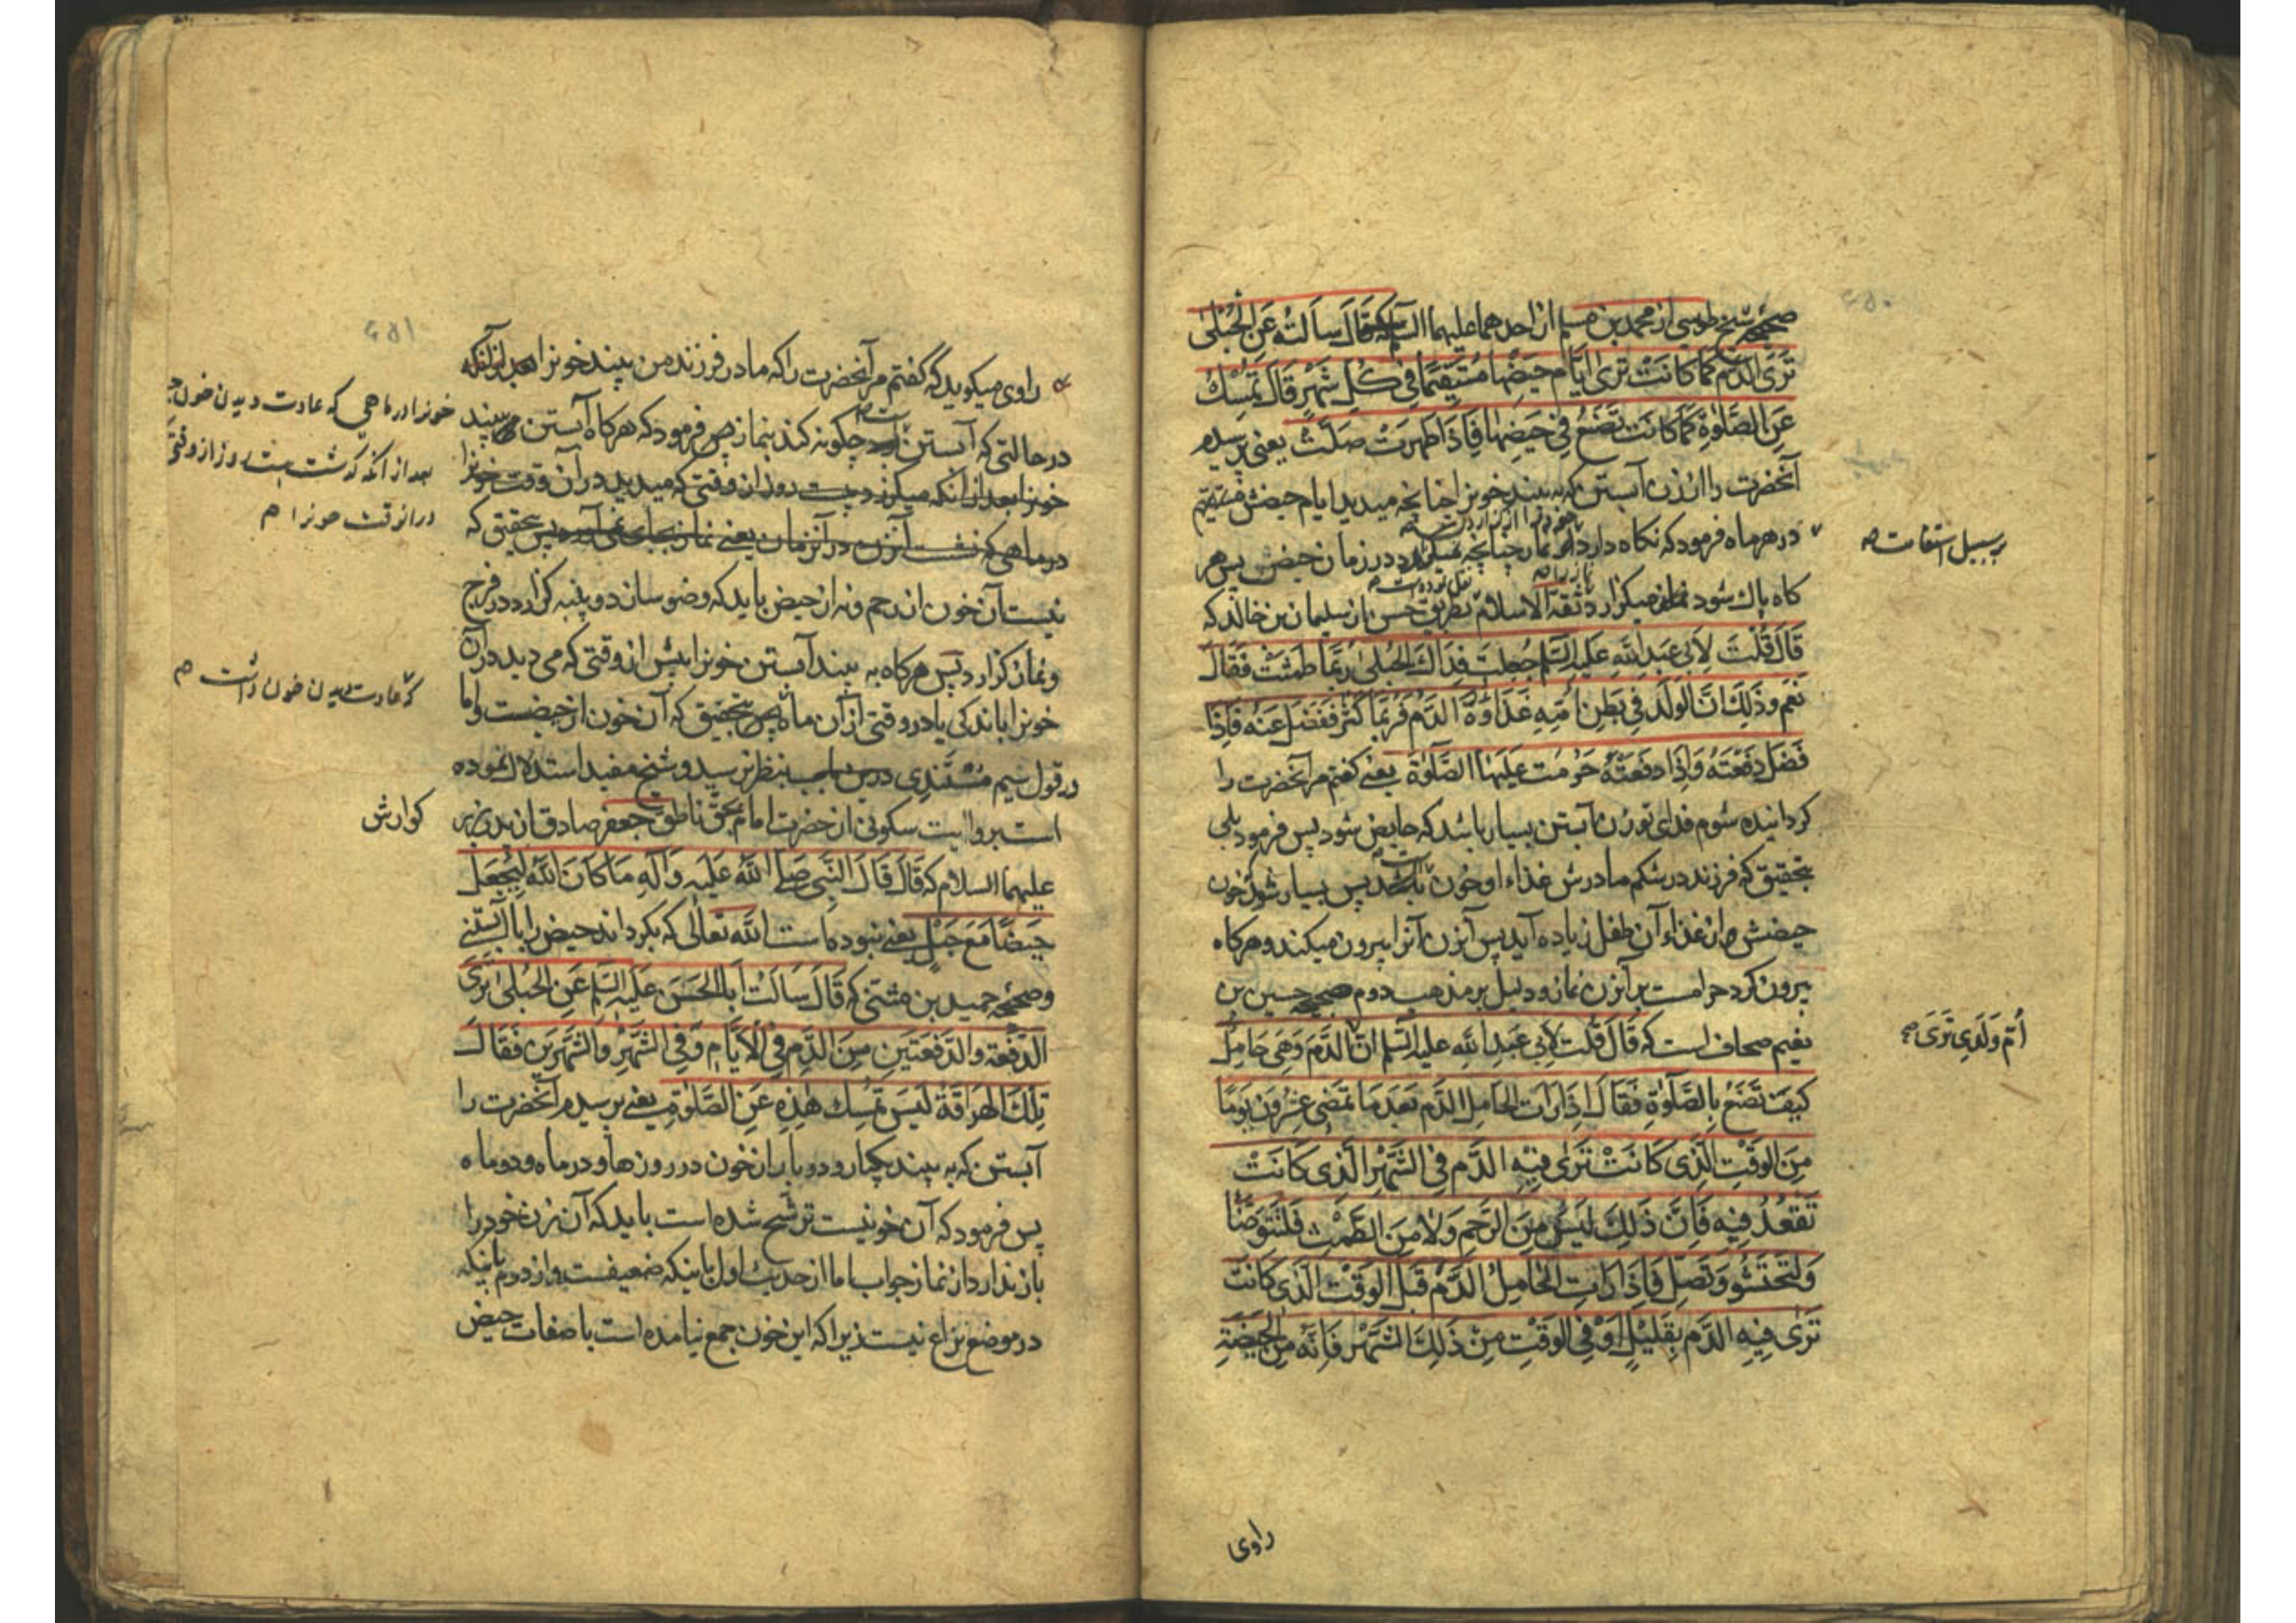 صحیحه شیخ طوسی از محمد بن مسلم از احدهما علیهما السلم که قَالَ سَاَلْتُهُ عَنِ الْحُبْلیٰ
تَرَی الدَّمَ کَمَا کَانَتْ تَرَیٰ اَیَّامَ حَیْضِهَا مُسْتَقِیمًا فِی کُلِّ شَهْرٍ قَالَ تُمْسِكُ
عَنِ الصَّلٰوةِ کَمَا کَانَتْ تَصْنَعُ فِی حَیْضِهَا فَاِذَا طَهُرَتْ صَلَّتْ یعنی پرسیدم
آنحضرت را از زن آبستن که به بیند خونرا چنانچه میدید ایام حیضش مستقیم
در هر ماه فرمود که نکاه دارد از نماز چنانچه میکرد در زمان حیض پس هر
بر سبیل استقامت
کاه پاك شود نماز میکزارد ثقة الاسلام بطریق حسن از سلیمان بن خالد که
قَالَ قُلْتُ لِاَبِی عَبْدِ اللّٰهِ عَلَیْهِ السَّلَم جُعِلْتُ فِدَاكَ الْحُبْلیٰ رُبَّمَا طَمِثَتْ فَقَالَ
نَعَم وَذٰلِكَ اَنَّ الْوَلَدَ فِی بَطْنِ اُمِّهِ غَذَاؤُهُ الدَّمُ فَرُبَّمَا کَثُرَ فَفَضَلَ عَنْهُ فَاِذَا
فَضَلَ دَفَعَتْهُ وَاِذَا دَفَعَتْهُ حَرُمَتْ عَلَیْهَا الصَّلٰوةُ یعنی کفتم مر آنحضرت را
کردانیده شوم فدای تو زن آبستن بسیار باشد که حایض شود پس فرمود بلی
بتحقیق که فرزند در شکم مادرش غذاء او خون باشد پس بسیار شود خون
حیضش و از غذاء آن طفل زیاده آید پس آنزن آنرا بیرون میکند و هر کاه
بیرون کرد حرامست بر آنزن نماز و دلیل بر مذهب دوم صحیحه حسین بن
نعیم صحاف است که قَالَ قُلْتُ لِاَبِی عَبْدِ اللّٰهِ علیه السّلم اِنَّ الدَّمَ وَهِیَ حَامِلٌ
اُمَّ وَلَدِی تَرَی
کَیْفَ تَصْنَعُ بِالصَّلٰوةِ فَقَالَ اِذَا رَاَتِ الْحَامِلُ الدَّمَ بَعْدَ مَا تَمْضِی عِشْرُونَ یَوْمًا
مِنَ الْوَقْتِ الَّذِی کَانَتْ تَرَیٰ فِیهِ الدَّمَ فِی الشَّهْرِ الَّذِی کَانَتْ
تَقْعُدُ فِیهِ فَاِنَّ ذٰلِكَ لَیْسَ مِنَ الرَّحِمِ وَلَا مِنَ الطَّمْثِ فَلْتَتَوَضَّأْ
وَلْتَحْتَشِ وَتُصَلِّ فَاِذَا رَاَتِ الْحَامِلُ الدَّمَ قَبْلَ الْوَقْتِ الَّذِی کَانَتْ
تَرَیٰ فِیهِ الدَّمَ بِقَلِیْلٍ اَوْ فِی الْوَقْتِ مِنْ ذٰلِكَ الشَّهْرِ فَاِنَّهُ مِنَ الْحَیْضَةِ
راوی
راوی میکوید که گفتم مر آنحضرت را که مادر فرزند من بیند خونرا بعد از آنکه
در حالتی که آبستن است چکونه کند بنماز پس فرمود که هر کاه آبستن به بیند
خونرا در ماهی که عادت دیدن خون
خونرا بعد از آنکه میکزرد بیست روز از وقتی که میدید در آن وقت خونرا
بعد از آنکه کذشت بیست روز از وقتی
در ماهی که نشست آنزن در آنزمان یعنی نماز بجای نمی آورد پس بتحقیق که
در آن وقت خونرا
نیست آن خون از رحم و نه از حیض باید که وضو سازد و پنبه کزارد در فرج
و نماز کزارد پس هر کاه به بیند آبستن خونرا پیش از وقتی که می دید در آن
که عادت دیدن خون داشت
خونرا باندکی یا در وقتی از آن ماه پس بتحقیق که آن خون از حیضست و اما
در قول سیم مُسْتَنَدِی درین باب بنظر نرسید و شیخ مفید استدلال نموده
است بروایت سکونی از حضرت امام بحق ناطق جعفر صادق از پدرش
کوارش
علیهما السلام که قَالَ قَالَ النَّبِی صَلَّی اللّٰهُ عَلَیْهِ وَآلِهِ مَا کَانَ اللّٰهُ لِیَجْعَلَ
حَیْضًا مَعَ حَبْلٍ یعنی نبوده است اللّٰه تعالٰی که بکرداند حیض را با آبستنی
و صحیحه حمید بن مثنی که قَالَ سَاَلْتُ اَبَا الْحَسَنِ عَلَیْهِ السَّلَم عَنِ الْحُبْلیٰ تَرَیَ
الدَّفْعَةَ وَالدَّفْعَتَیْنِ مِنَ الدَّمِ فِی الْاَیَّامِ وَفِی الشَّهْرِ وَالشَّهْرَیْنِ فَقَالَ
تِلْكَ الْهِرَاقَةُ لَیْسَ تُمْسِكُ هٰذِهِ عَنِ الصَّلٰوةِ یعنی پرسیدم آنحضرت را
آبستن که به بیند یکبار و دو بار از خون در روزها و در ماه و دو ماه
پس فرمود که آن خونیست ترشح شده است باید که آن زن خود را
باز ندارد از نماز جواب ما از حدیث اول باینکه ضعیفست و از دوم باینکه
در موضع نزاع نیست زیرا که این خون جمع نیامده است با صفات حیض